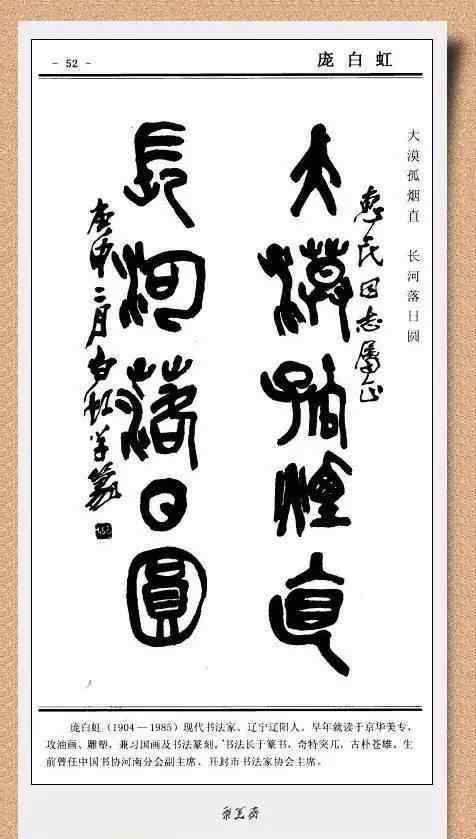 - 52 -
庞白虹
大漠孤烟直 长河落日圆
惠民同志属正
大漠孤煙直
長河落日圓
庚申二月白虹学篆
庞白虹(1904—1985)现代书法家。辽宁辽阳人。早年就读于京华美专,
攻油画、雕塑,兼习国画及书法篆刻。书法长于篆书,奇特突兀,古朴苍雄。生
前曾任中国书协河南分会副主席、开封市书法家协会主席。